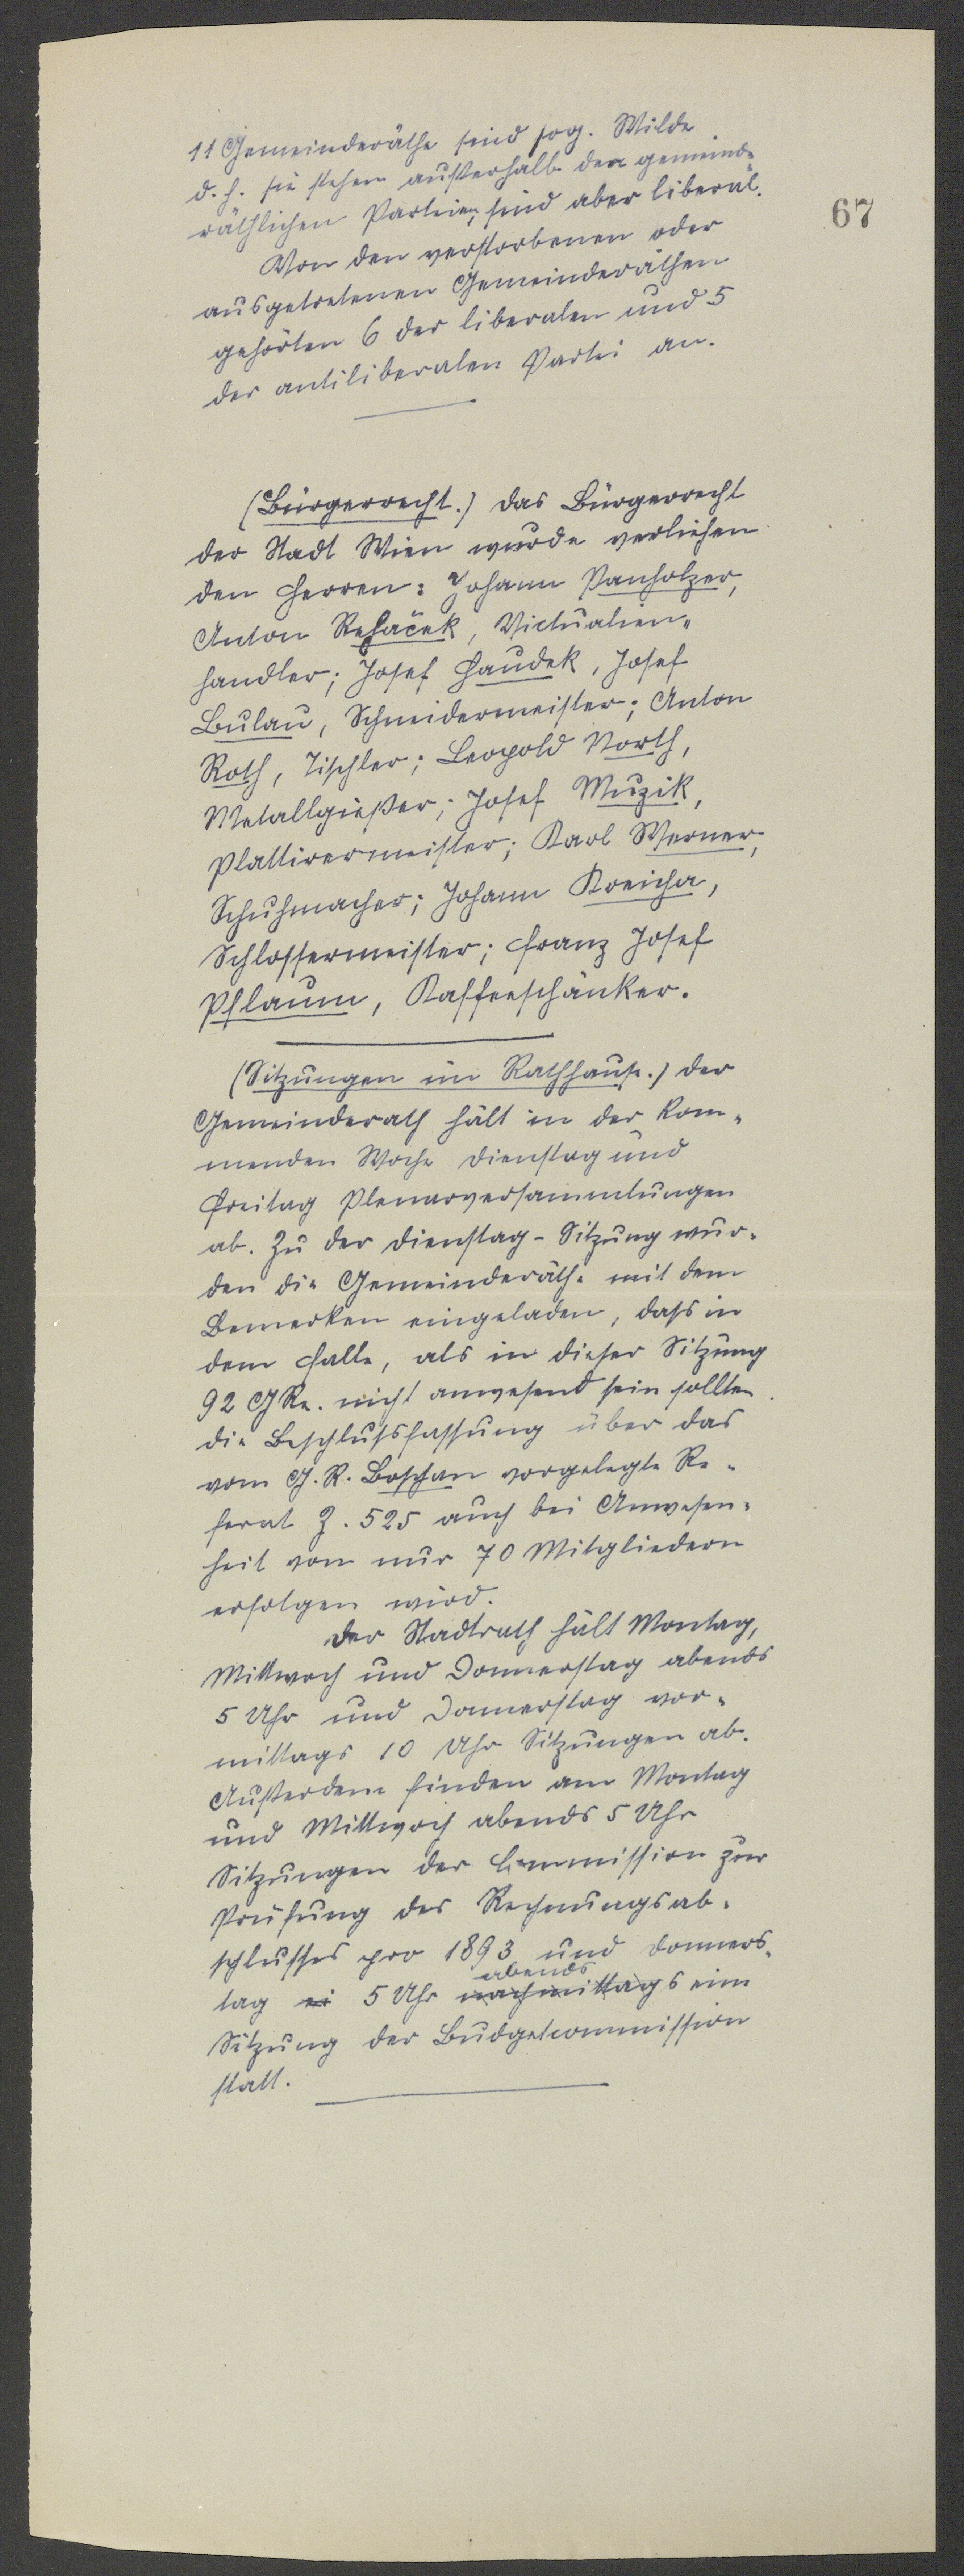 11 Gemeinderäthe sind sog. Wilde
d. h. sie stehen außerhalb der gemeinde-
räthlichen Parteien, sind aber liberal.
67
Von den verstorbenen oder
ausgetretenen Gemeinderäthen
gehörten 6 der liberalen und 5
der antiliberalen Partei an.
(Bürgerrecht.) Das Bürgerrecht
der Stadt Wien wurde verliehen
den Herren: Johann Panholzer,
Anton Rehaček, Victualien-
händler; Josef Haudek, Josef
Bulau, Schneidermeister; Anton
Roth, Tischler; Leopold North,
Metallgießer; Josef Muzik,
Plattirermeister; Karl Werner,
Schuhmacher; Johann Kreicha,
Schlossermeister; Franz Josef
Pflaum, Kaffeeschänker.
(Sitzungen im Rathhause.) Der
Gemeinderath hält in der kom-
menden Woche Dienstag und
Freitag Plenarversammlungen
ab. Zu der Dienstag-Sitzung wur-
den die Gemeinderäthe mit dem
Bemerken eingeladen, dass in
dem Falle, als in dieser Sitzung
92 GRe. nicht anwesend sein sollten
die Beschlußfassung über das
vom G. R. Boschan vorgelegte Re-
ferat Z. 525 auch bei Anwesen-
heit von nur 70 Mitgliedern
erfolgen wird.
Der Stadtrath hält Montag,
Mittwoch und Donnerstag abends
5 Uhr und Donnerstag vor-
mittags 10 Uhr Sitzungen ab.
Außerdem finden am Montag
und Mittwoch abends 5 Uhr
Sitzungen der Commission zur
Prüfung des Rechnungsab-
schlusses pro 1893 und Donners-
abends
tag ei 5 Uhr nachmittags eine
Sitzung der Budgetcommission
statt.